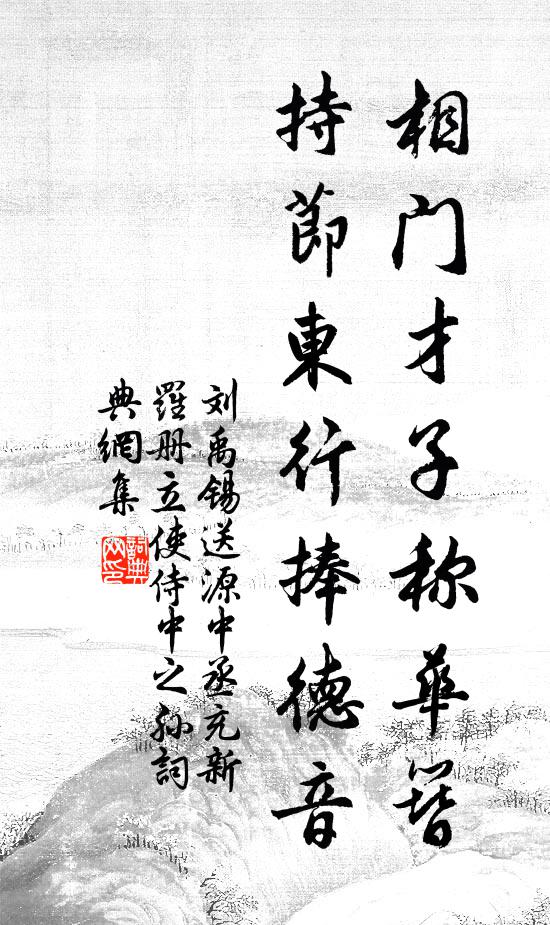 相门才子称华簪
持节東行捧德音
刘禹锡送源中丞充新
羅册立使侍中之孙詞
典網集
詞典網印